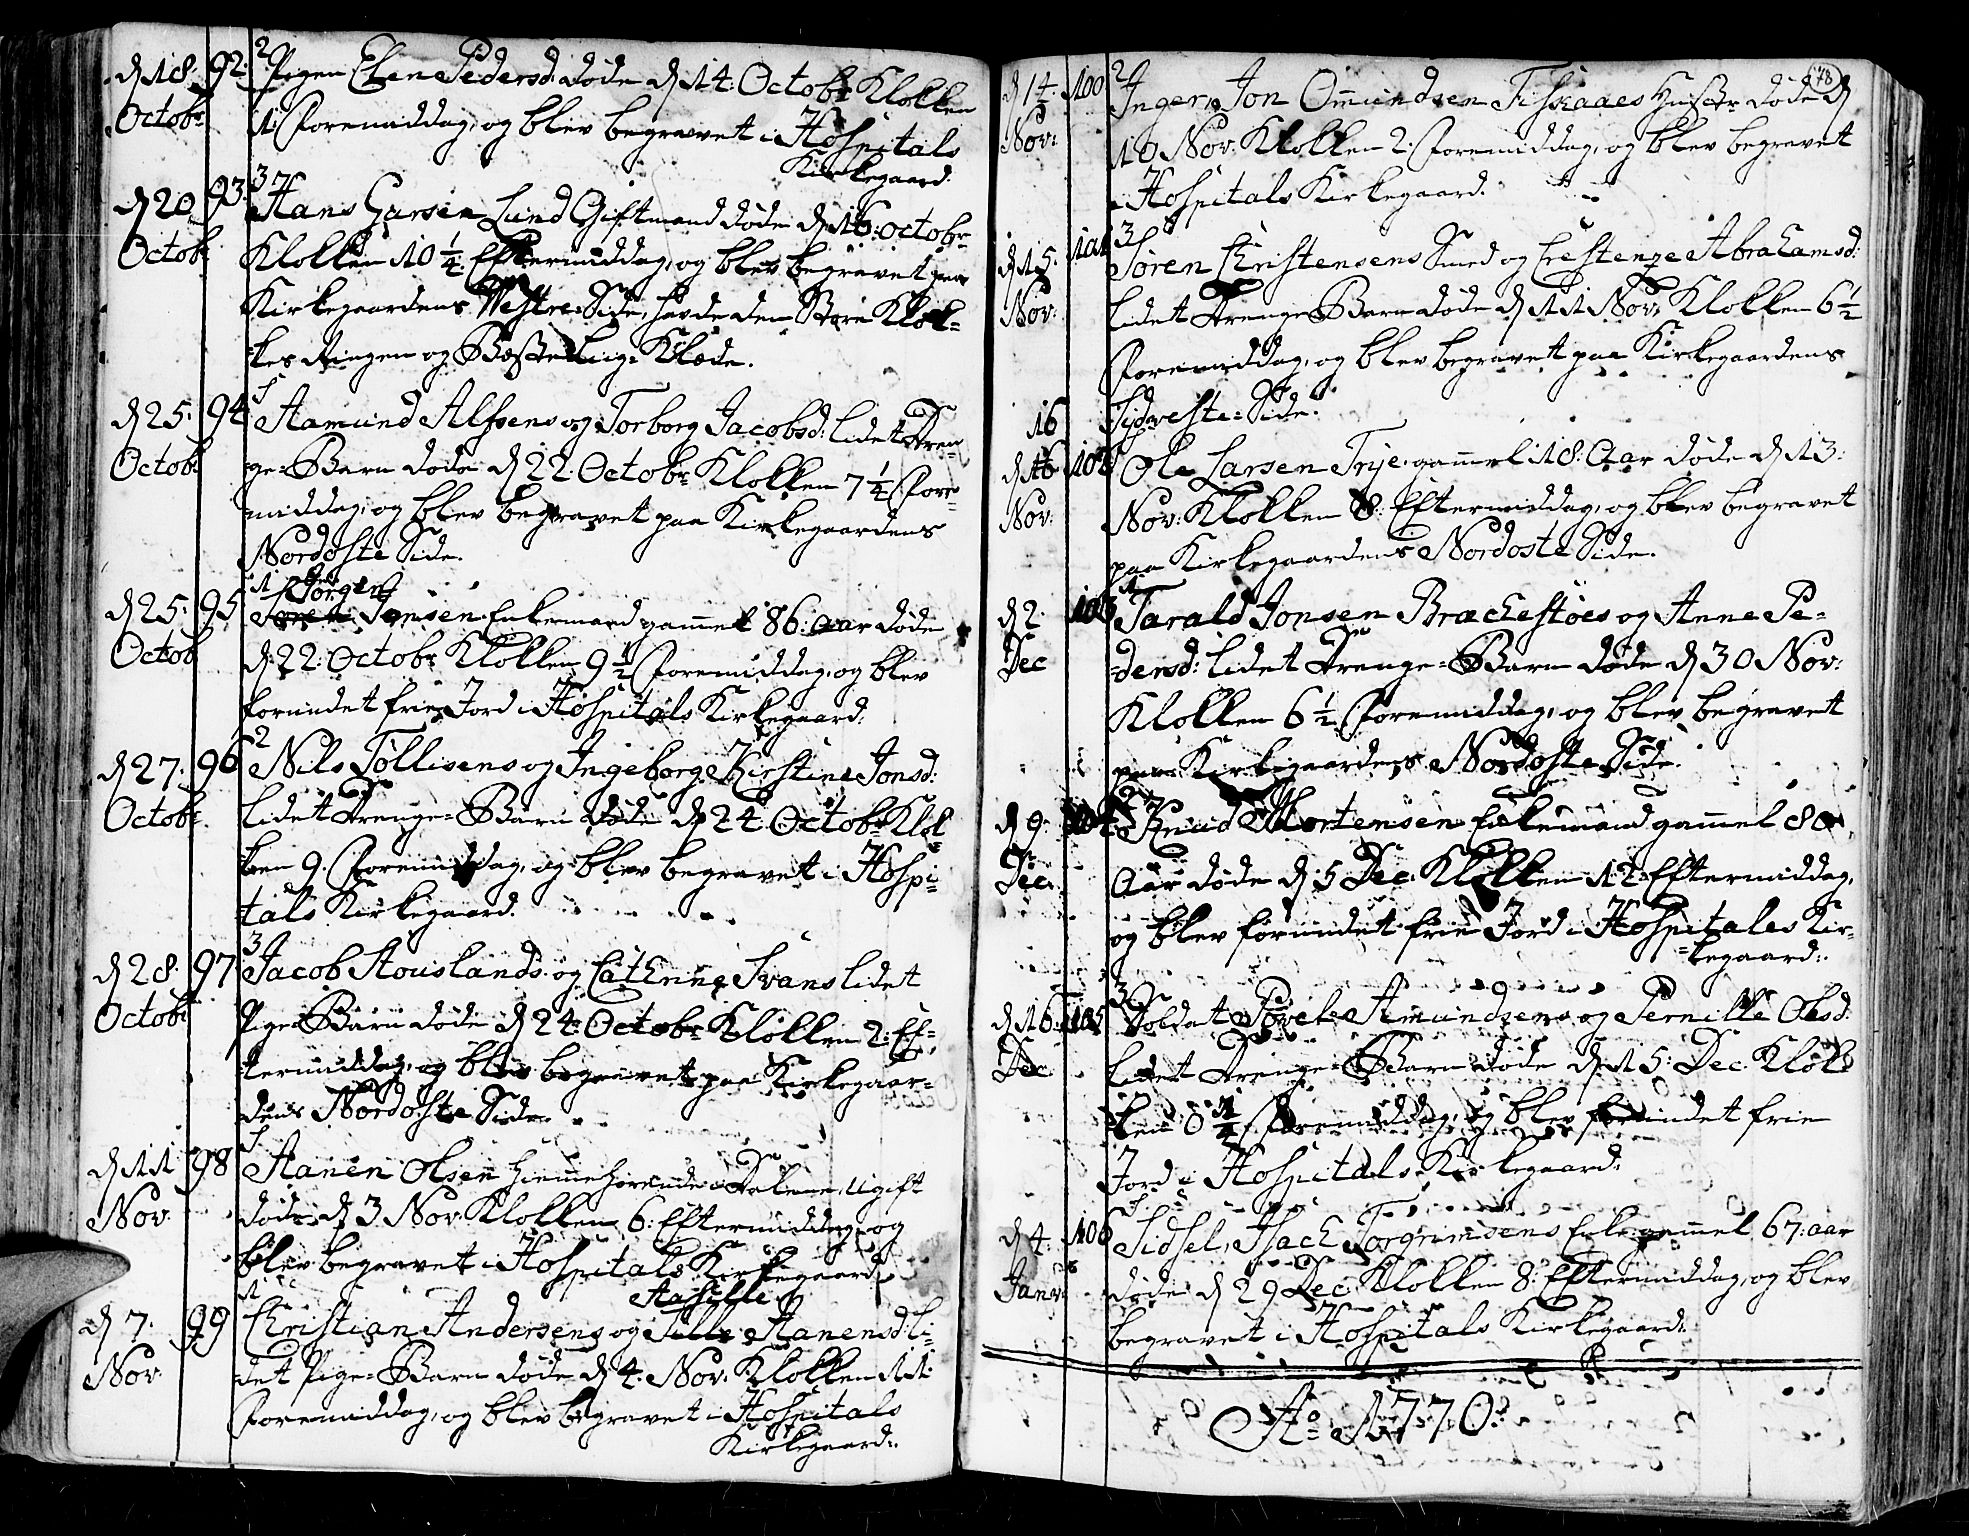 d 18. 92. 2 Pigen Elen Pedersd: døde d 14. Octobr Klokken
Octobr 11 Formiddag, og blev begravet i Hospitals
Kirkegaard
d 20 93. 3 Hans Lund Giftmand døde d 16. octobr
Octob: Klokken 10 1/4 Eftermiddag, og blev begravet paa
Kirkegaardens Vestre Side, havde den Store Klok=
kes Ringen og Klæde.
d 25. 94 S Aamund Alfsens og Torborg Jacobsd: lidet Dren=
Octob: ge=Barn døde d 22. Octobr Klokken 7 1/4 For=
middag, og blev begravet paa Kirkegaardens
Nordoste Side.
1 Jørgen
d 25. 95 Jonsen Enkemand gammel 86. aar døde
Octob d. 22. Octobr Klokken 9 1/2 Formiddag, og blev
forundet frie Jord i Hospitals Kirkegaard.
d 27. 96 2 Nils Tøllisens og Ingeborg Kirstine Jonsd:
Octobr lidet Drenge=Barn døde d 24. Octobr Klok
ken 9. Formiddag, og blev begravet i Hospi=
tals Kirkegaard.
d 28. 97 3 Jacob Stouslands og Cathrine Svans lidet
Octobr Pige=Barn døde d 24. Octobr Klokken 2. Ef=
termiddag, og blev begravet paa Kirkegaar=
dens Nordoste Side.
d 11 98 S Aanen Olsen hiemmehørende i Dalene, Ugift
Nov. døde d 3 Nov. Klokken 6. Eftermiddag, og
blev begravet i Hospitals Kirkegaard.
Aasille
d 7. 99 1 Christian Andersens og Aanensd: li=
Nov. det Pige=Barn døde d 4. Nov. Klokken 11.
Formiddag, og blev begravet i Hospitals
Kirkegaard.
78
d 14. 100 2 Inger, Jon Omundsen Fiskaaes Hustr døde d
Nov: 10 Nov. Klokken 2. Formiddag, og blev begravet
i Hospitals Kirkegaard.
d 15. 101 3 Søren Christensens Smed og Crestenze Abrahamsd:
Nov: lidet Drenge=Barn døde d 11 Nov. Klokken 6 1/2
Formiddag, og blev begravet paa Kirkegaardens
16 Sydveste=Side.
d 16 102 Ole Larsen Trye, gammel 18. Aar døde d 13.
Nov: Nov: Klokken 8. Eftermiddag, og blev begravet
paa Kirkegaardens Nordoste Side.
d 2. 103 1 Tarald Jonsen Brækkestøes og Anne Pe=
Dec =dersd: lidet Drenge=Barn døde d 30 Nov:
Klokken 6 1/2 Formiddag, og blev begravet
paa Kirkegaardens Nordoste Side.
d 9. 104 2 Knud Mortensen Enkemand gammel 80
Dec. Aar døde d 5 Dec. Klokken 12. Eftermiddag,
og blev forundet frie Jord i Hospitales Kir=
=kegaard.
d 16. 105 3 Soldat Povel Aamundsens og Pernille Olsd:
Dec lidet Drenge=Barn døde d 15. Dec. Klok
ken 8 1/4 Formiddag, og blev forundet frie
Jord i Hospitals Kirkegaard.
d 4. 106 S Sidsel, Isach Torgrimsens Enke gammel 67. aar
Januar døde d 29 Dec Klokken 8. Eftermiddag, og blev
begravet i Hospitals Kirkegaard.
Ao 1770.